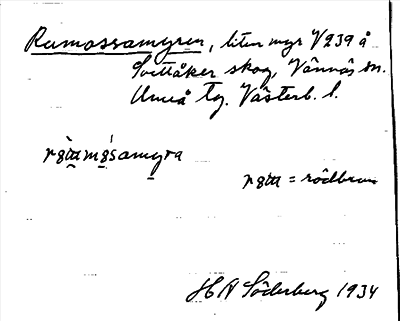 Rumossamyren, liten myr V239 å
Sottåker skog, Vännäs sn.
Umeå tg. Västerb. l.
= rödbrun
H A Söderberg 1934